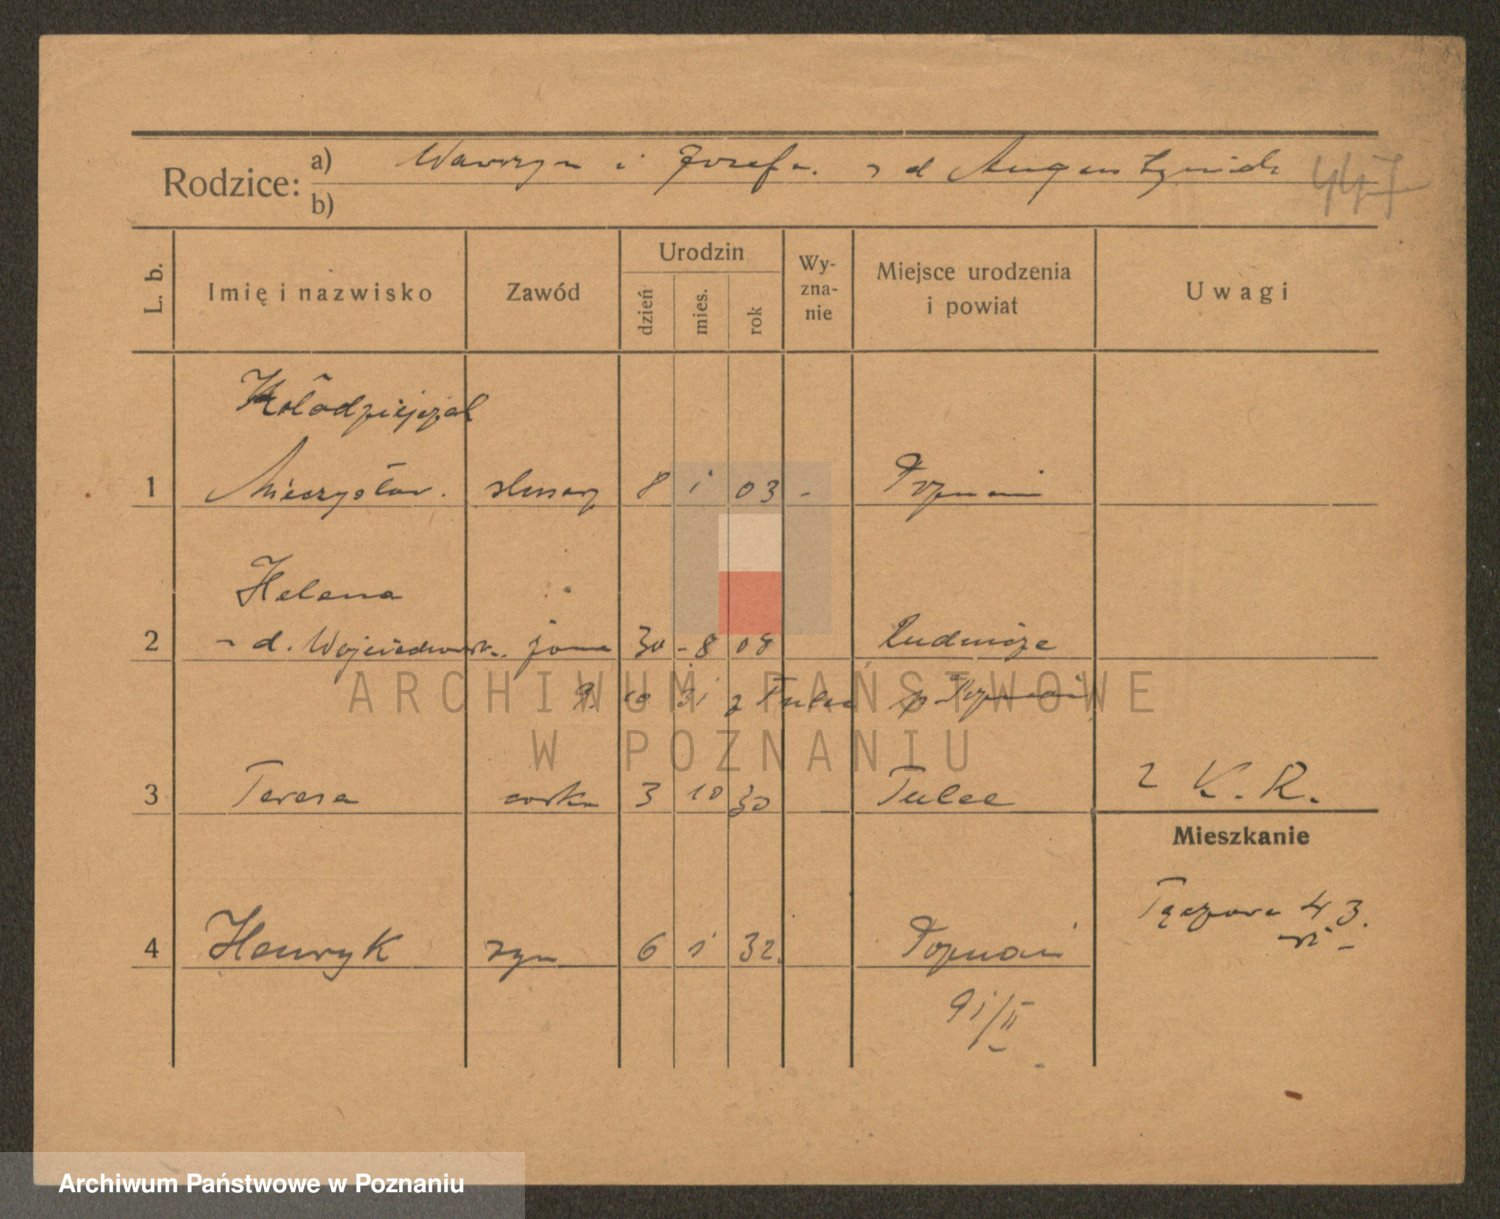 Rodzice: a) Wawrzyn i Józefa z d Augustyniak 447
b)
L. b. Imię i nazwisko Zawód Urodzin dzień mies. rok Wy-zna-nie Miejsce urodzenia i powiat Uwagi
Kołodziejczak
1 Mieczysław. slusarz 8 i 03 - Poznań
Helena
2 z d. żona 30 - 8 08
9. 10 31 z Tulec p Poznań
ARCHIWUM PAŃSTWOWE
W POZNANIU
3 Teresa corka 3 10 30 Tulce 2 K. R.
Mieszkanie
Tęczowa 4 3.
4 Henryk syn 6 i 32. Poznań
9 i/II
Archiwum Państwowe w Poznaniu